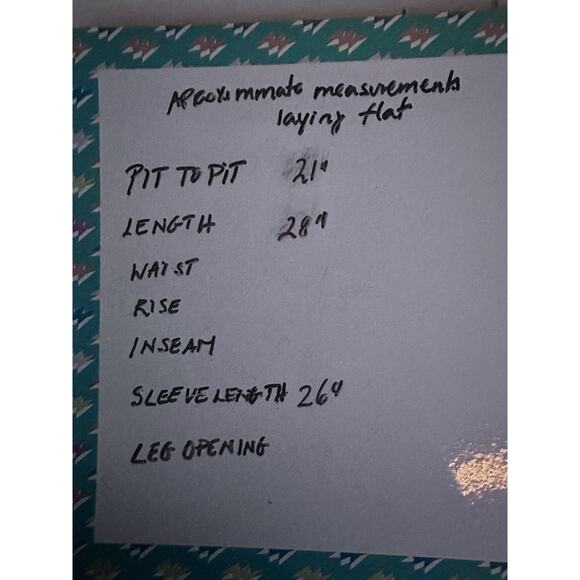 APROXIMMATE measurements
laying flat
PIT TO PIT 21"
LENGTH 28"
WAIST
RISE
INSEAM
SLEEVE LENGTH 26"
LEG OPENING